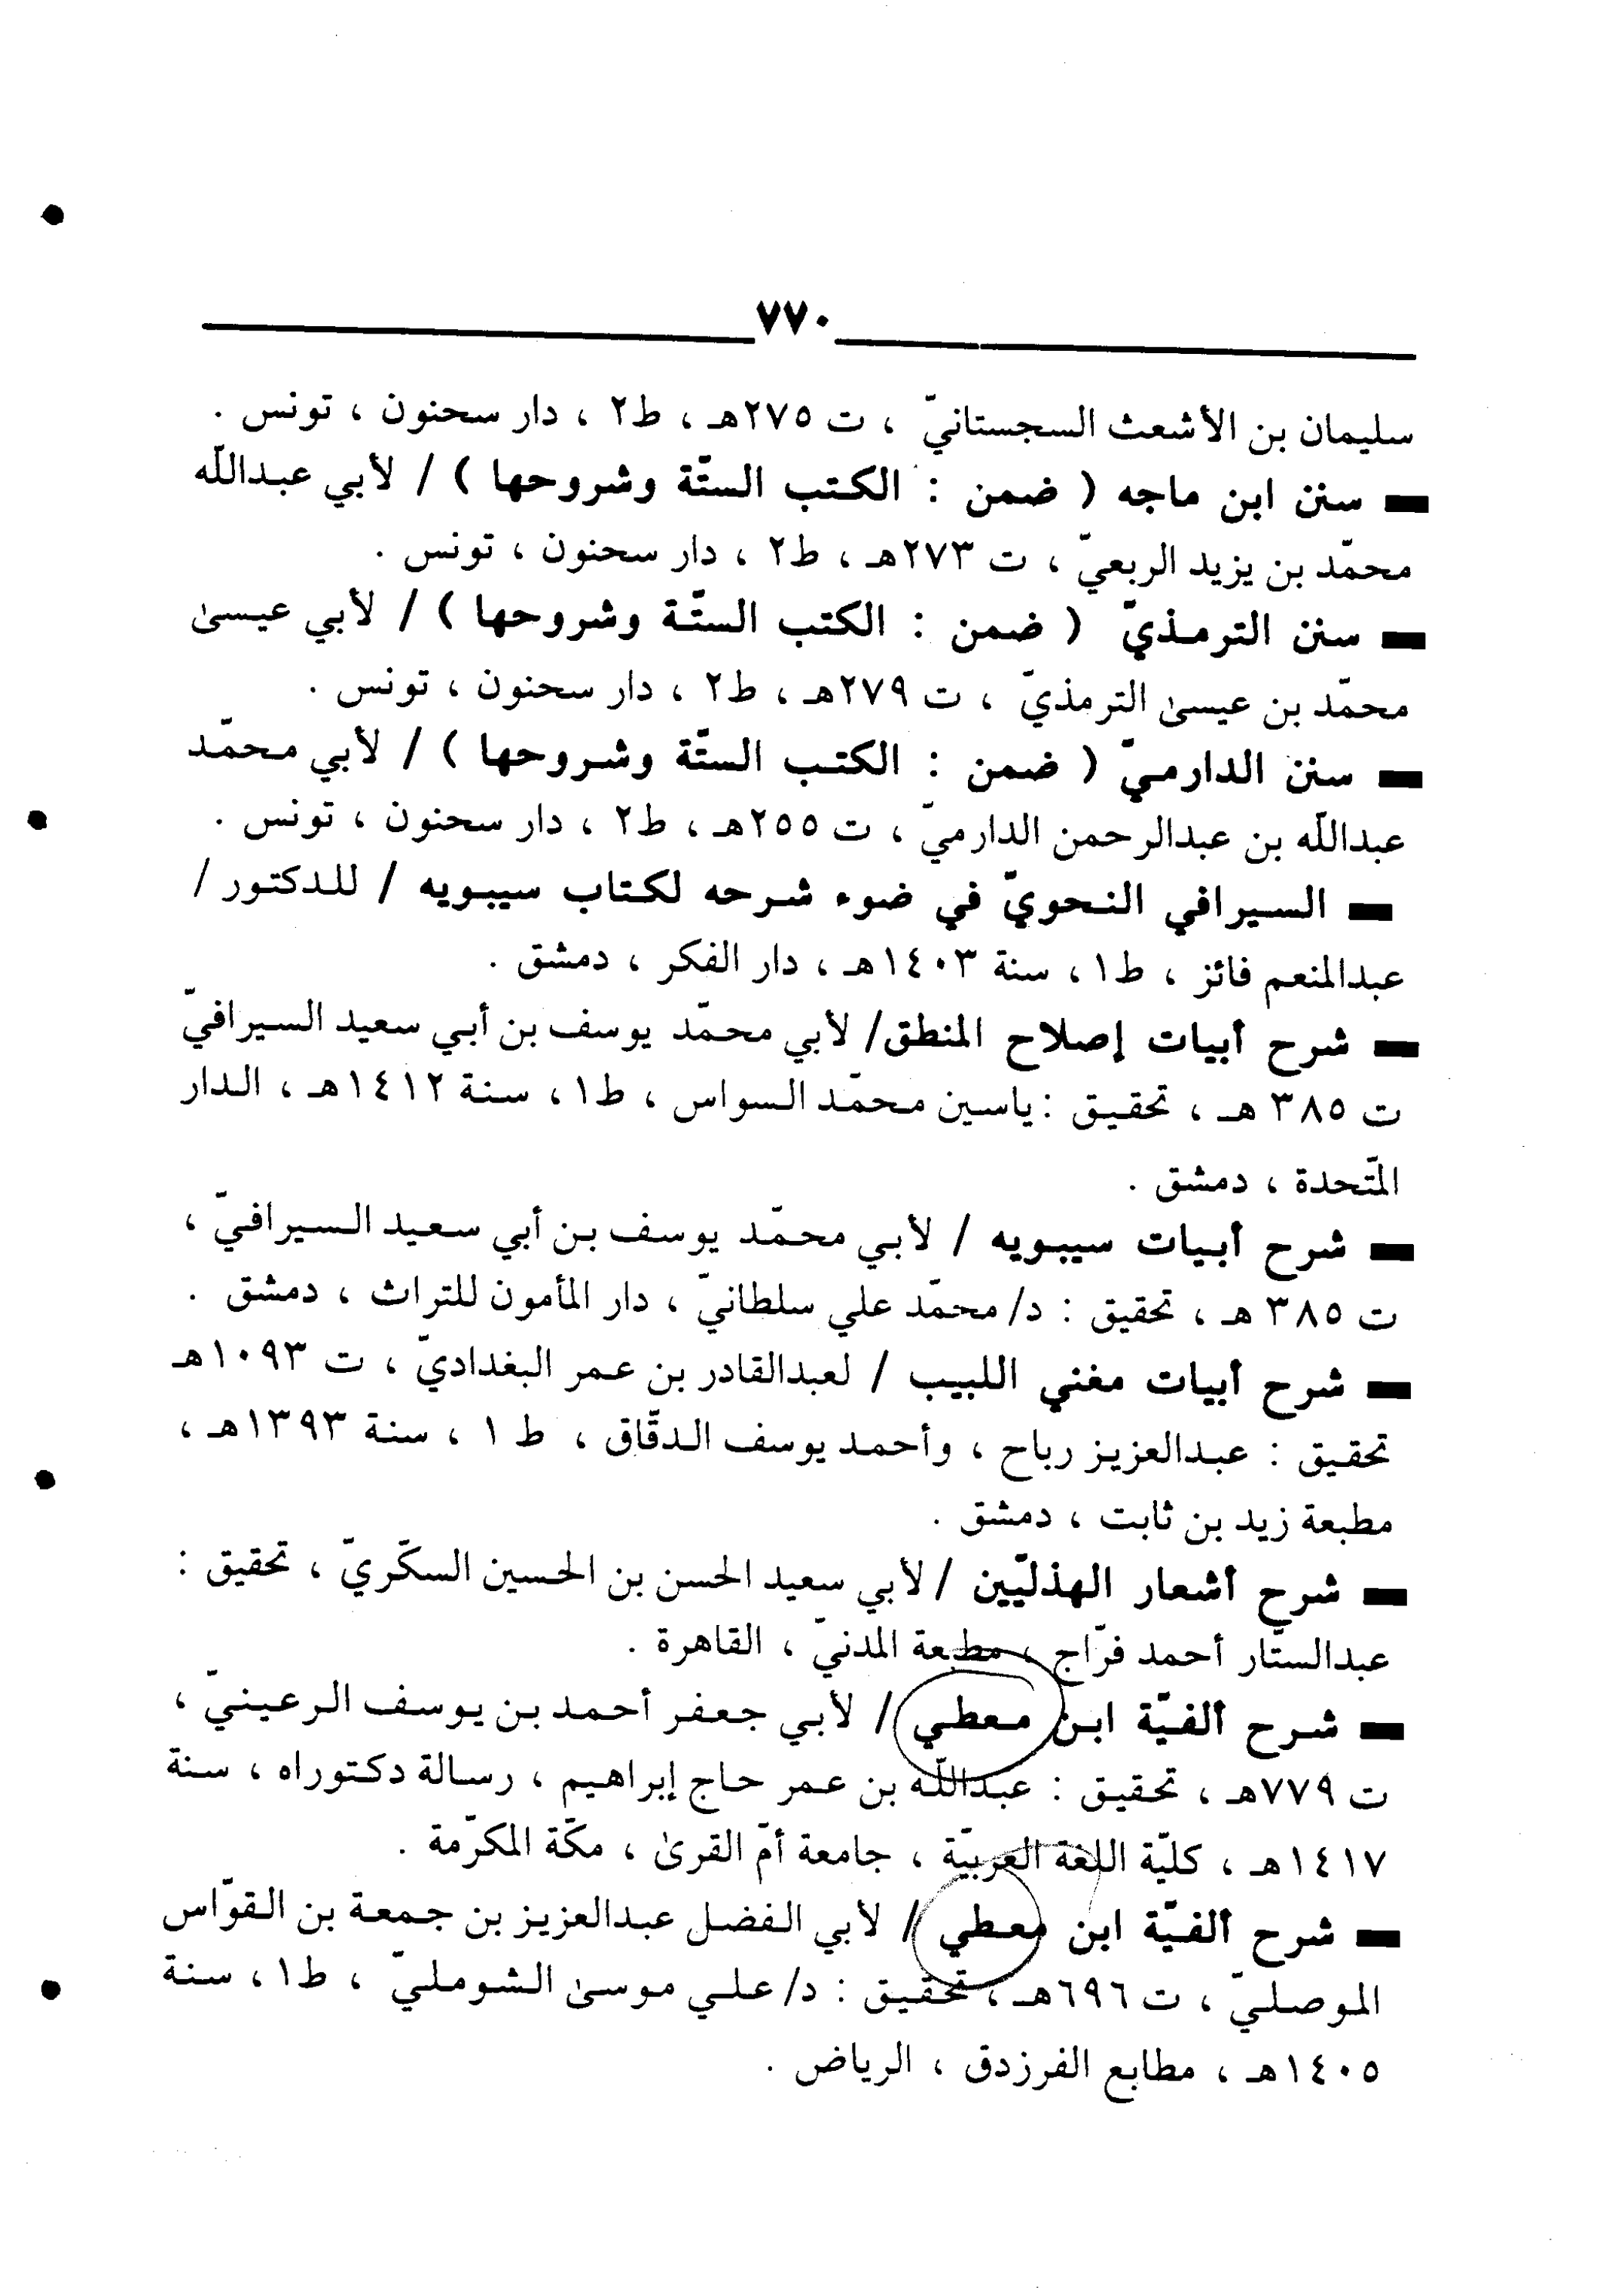 ٧٧٠
سليمان بن الأشعث السجستانيّ ، ت ٢٧٥هـ ، ط٢ ، دار سحنون ، تونس .
ـ سنن ابن ماجه ( ضمن : الكتب الستّة وشروحها ) / لأبي عبداللّه
محمّد بن يزيد الربعيّ ، ت ٢٧٣هـ ، ط٢ ، دار سحنون ، تونس .
ـ سنن الترمذيّ ( ضمن : الكتب الستّة وشروحها ) / لأبي عيسىٰ
محمّد بن عيسىٰ الترمذيّ ، ت ٢٧٩هـ ، ط٢ ، دار سحنون ، تونس .
ـ سنن الدارميّ ( ضمن : الكتب الستّة وشروحها ) / لأبي محمّد
عبداللّه بن عبدالرحمن الدارميّ ، ت ٢٥٥هـ ، ط٢ ، دار سحنون ، تونس .
ـ السيرافي النحويّ في ضوء شرحه لكتاب سيبويه / للدكتور /
عبدالمنعم فائز ، ط١ ، سنة ١٤٠٣هـ ، دار الفكر ، دمشق .
ـ شرح أبيات إصلاح المنطق/ لأبي محمّد يوسف بن أبي سعيد السيرافيّ
ت ٣٨٥ هـ ، تحقيق : ياسين محمّد السواس ، ط١ ، سنة ١٤١٢هـ ، الدار
المتّحدة ، دمشق .
ـ شرح أبيات سيبويه / لأبي محمّد يوسف بن أبي سعيد السيرافيّ ،
ت ٣٨٥ هـ ، تحقيق : د/ محمّد علي سلطانيّ ، دار المأمون للتراث ، دمشق .
ـ شرح أبيات مغني اللبيب / لعبدالقادر بن عمر البغداديّ ، ت ١٠٩٣هـ
تحقيق : عبدالعزيز رباح ، وأحمد يوسف الدقّاق ، ط ١ ، سنة ١٣٩٣هـ ،
مطبعة زيد بن ثابت ، دمشق .
ـ شرح أشعار الهذليّين / لأبي سعيد الحسن بن الحسين السكّريّ ، تحقيق :
عبدالستّار أحمد فرّاج ، مطبعة المدنيّ ، القاهرة .
ـ شرح ألفيّة ابن معطي / لأبي جعفر أحمد بن يوسف الرعينيّ ،
ت ٧٧٩هـ ، تحقيق : عبداللّه بن عمر حاج إبراهيم ، رسالة دكتوراه ، سنة
١٤١٧هـ ، كليّة اللغة العربيّة ، جامعة أمّ القرىٰ ، مكّة المكرّمة .
ـ شرح ألفيّة ابن معطي / لأبي الفضل عبدالعزيز بن جمعة بن القوّاس
الموصليّ ، ت ٦٩٦هـ ، تحقيق : د/ علي موسىٰ الشومليّ ، ط١ ، سنة
١٤٠٥هـ ، مطابع الفرزدق ، الرياض .